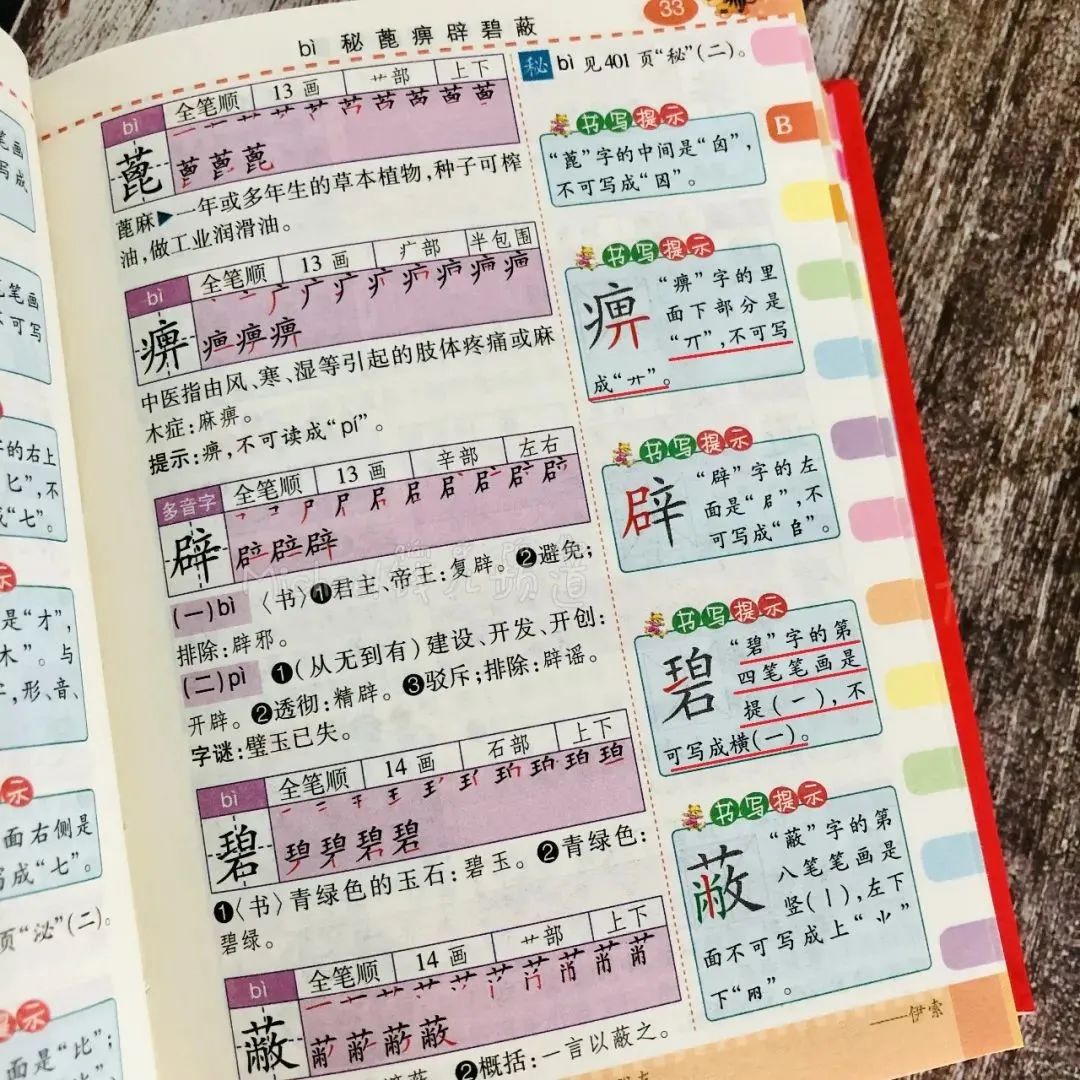 33
bì 秘蓖痹辟碧蔽
bì
全笔顺 13画 艹部 上下
蓖
蓖麻▶一年或多年生的草本植物,种子可榨
油,做工业润滑油。
bì
全笔顺 13画 疒部 半包围
痹
中医指由风、寒、湿等引起的肢体疼痛或麻
木症:麻痹。
提示:痹,不可读成“pí”。
多音字
全笔顺 13画 辛部 左右
辟
(一)bì 〈书〉❶君主、帝王:复辟。❷避免;
排除:辟邪。
(二)pì ❶(从无到有)建设、开发、开创:
开辟。❷透彻:精辟。❸驳斥;排除:辟谣。
字谜:璧玉已失。
bì
全笔顺 14画 石部 上下
碧
❶〈书〉青绿色的玉石:碧玉。❷青绿色:
碧绿。
bì
全笔顺 14画 艹部 上下
蔽
❷概括:一言以蔽之。
秘 bì 见401页“秘”(二)。
B
书写提示
“蓖”字的中间是“囟”,
不可写成“囡”。
书写提示
痹
“痹”字的里
面下部分是
“丌”,不可写
成“廾”。
书写提示
辟
“辟”字的左
面是“𡰪”,不
可写成“㠯”。
书写提示
碧
“碧”字的第
四笔笔画是
提(㇀),不
可写成横(一)。
书写提示
蔽
“蔽”字的第
八笔笔画是
竖(丨),左下
面不可写成上“⺌”
下“
——伊索